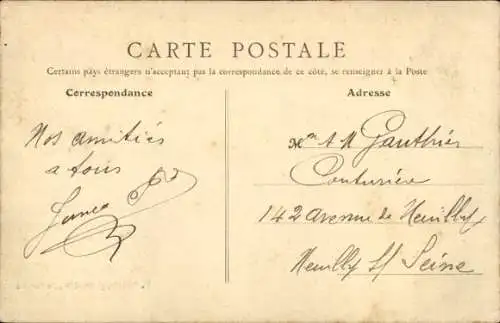 CARTE POSTALE
Certains pays étrangers n'acceptant pas la correspondance de ce côté, se renseigner à la Poste
Correspondance
Nos amitiés
a tous
Adresse
Gauthier
Couturière
142 Avenue de Neuilly
Neuilly s/ Seine